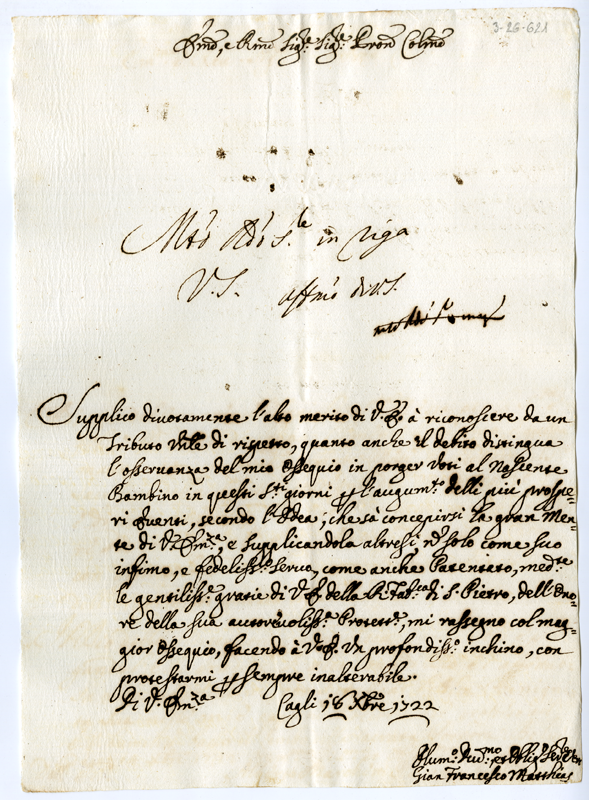 3-26-621
Emō, e Rmō Sigr.e Sigr.e Pron̄ Colmō
in
V. S. affmo di V.S.
Supplico divotamente l'alto merito di V. Em̄ à riconoscere da un
Tributo Vile di rispetto, quanto anche il debito distingua
l'osservanza del mio Ossequio in porger Voti al Nascente
Bambino in questi S.ti giorni p l'augum.to delli più prospe-
ri Euenti, secondo l'Idea, che sà concepirsi la gran Men-
te di V. Em.za, e supplicandola altresì nō solo come suo
infimo, e fidelliss.o seruo, come anche Patentato, med.te
le gentiliss.e gratie di V. Em̄ della R. Fab.ca di S. Pietro, dell'Ono-
re della sua autoreuoliss.a Protett.e, mi rassegno col mag-
gior Ossequio, facendo à V. Em̄. Vn profondiss.o inchino, con
protestarmi p sempre inalterabile.
Di V. Em.za Cagli 18 Xbre 1722
Hum.o Diu.mo et Oblig. Ser.
Gian Francesco Matthias